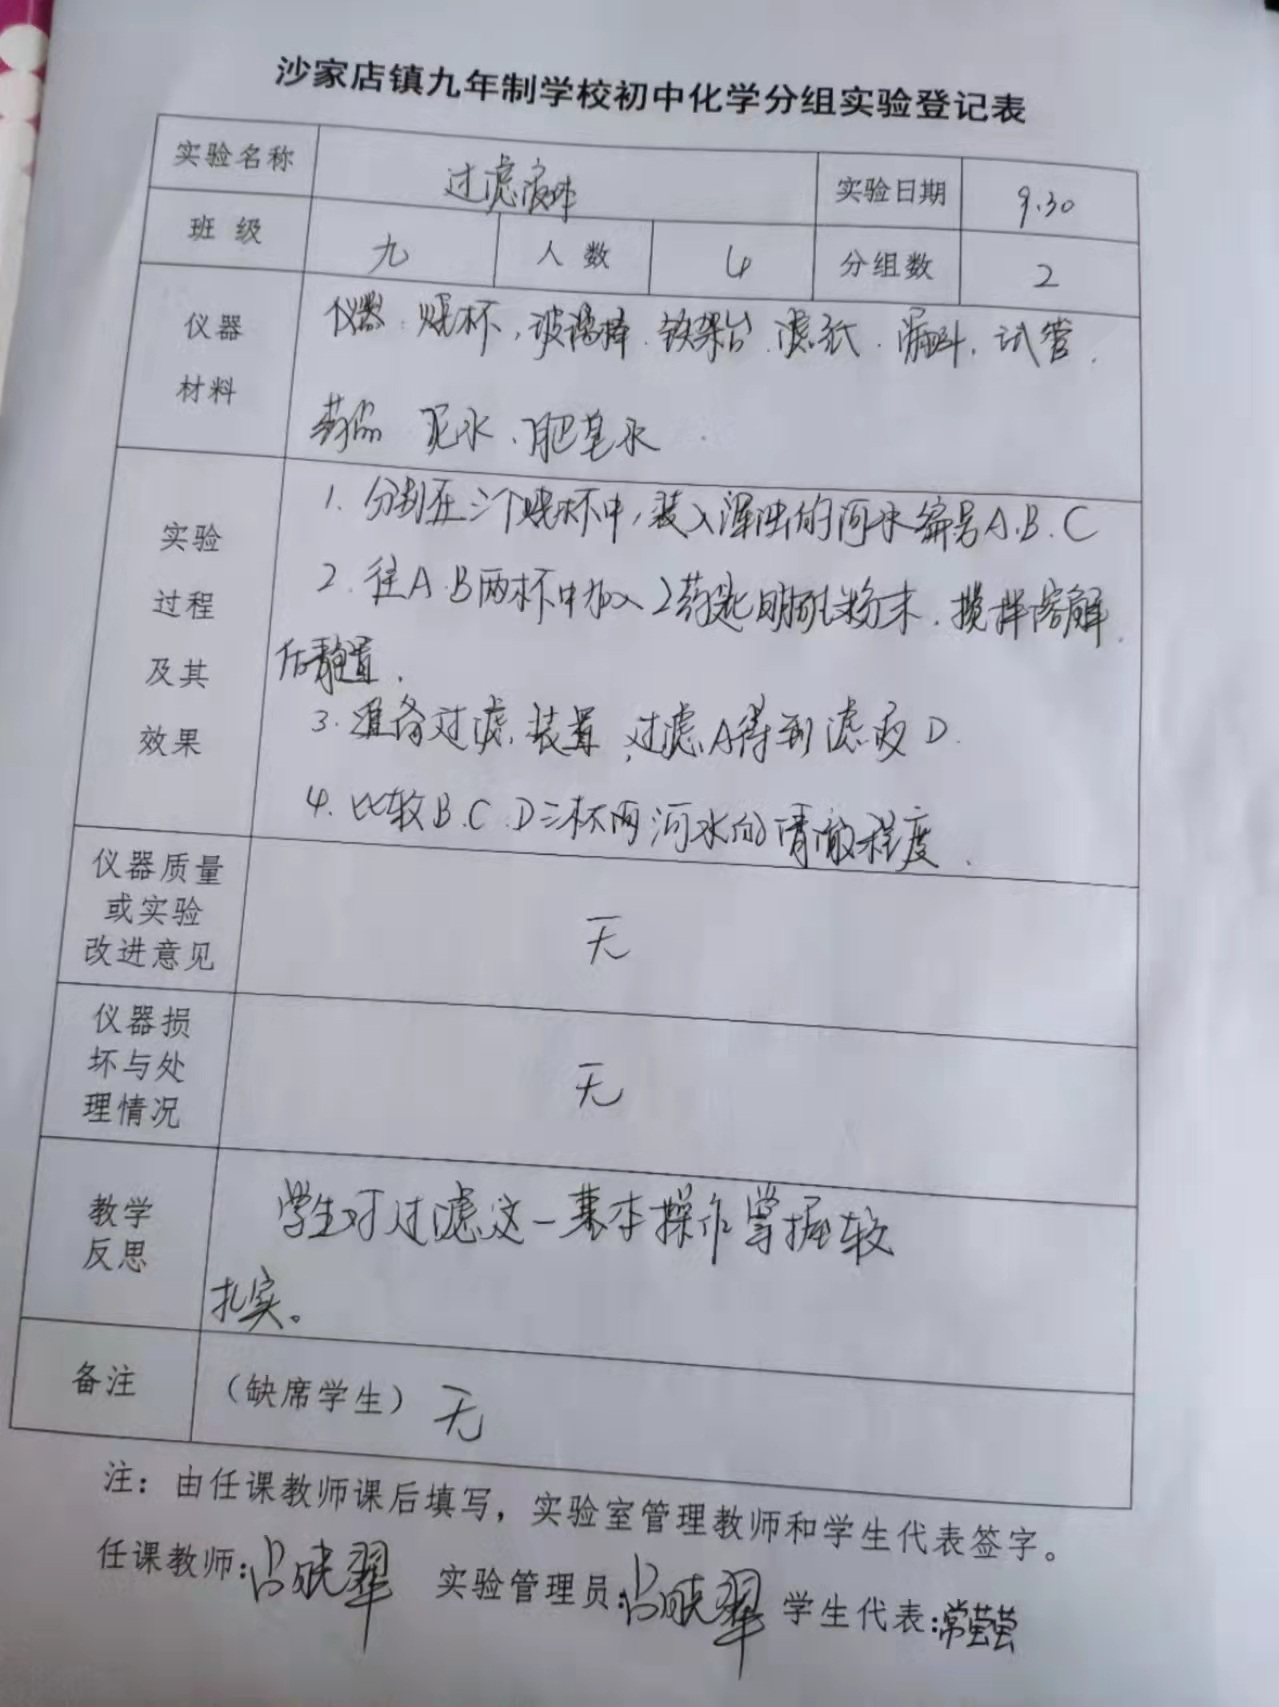 沙家店镇九年制学校初中化学分组实验登记表
实验名称 过滤液体 实验日期 9.30
班级 九 人数 4 分组数 2
仪器材料 仪器：烧杯，玻璃棒、铁架台、滤纸、漏斗、试管、
药品 泥水、肥皂水
实验过程及其效果 1. 分别在三个烧杯中，装入浑浊的河水编号A.B.C
2. 往A.B两杯中加入2药匙明矾粉末．搅拌溶解
后静置．
3. 准备过滤装置，过滤A得到滤液D．
4. 比较B.C.D三杯两河水的清澈程度．
仪器质量
或实验
改进意见
无
仪器损
坏与处
理情况
无
教学
反思
学生对过滤这一基本操作掌握较
扎实。
备注 （缺席学生） 无
注：由任课教师课后填写，实验室管理教师和学生代表签字。
任课教师: 实验管理员: 学生代表:常莹莹